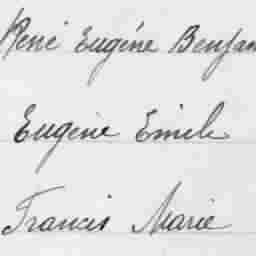 René Eugène Benjam
Eugène Emile
Francis Marie